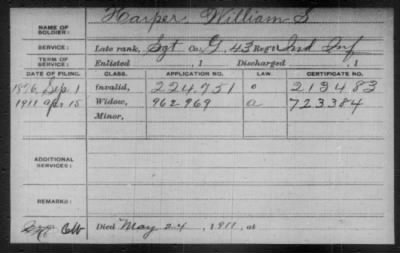 NAME OF SOLDIER: Harper, William S
SERVICE: Late rank, Sgt Co. G, 43 Reg't Ind Inf
TERM OF SERVICE: Enlisted , 1 Discharged , 1
DATE OF FILING. CLASS. APPLICATION NO. LAW. CERTIFICATE NO.
1876 Sep. 1 Invalid, 224.751 213483
1911 Apr 15 Widow, 962-969 a 723384
Minor,
ADDITIONAL SERVICES:
REMARKS:
Died May 24, 1911, at